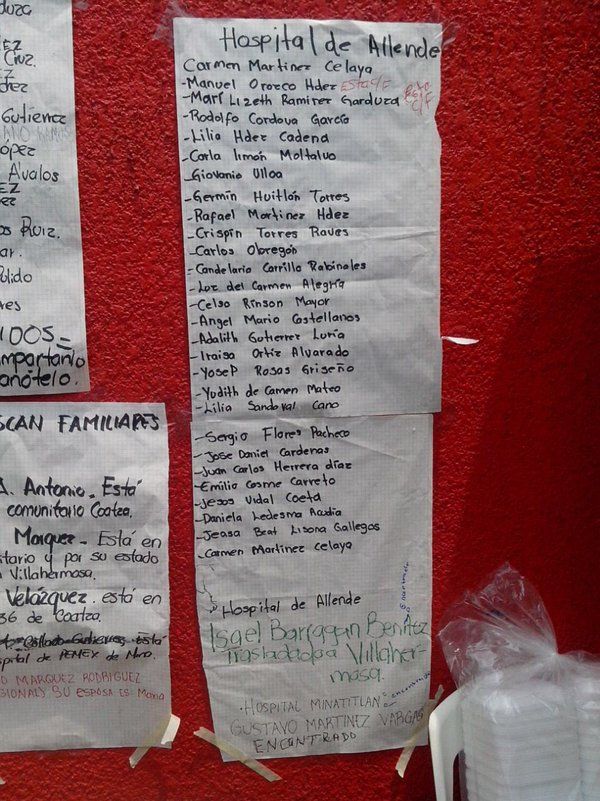 Cruz.
Gutiérrez
ópez
Avalos
Ruiz.
ar.
ulido
res
importante
anótelo.
SCAN FAMILIARES
A. Antonio. Está
comunitario Coatza.
Marquez - Está en
itario y por su estado
Villahermosa.
Velázquez. está en
36 de Coatza.
spital de PEMEX de Nvo.
O MARQUEZ RODRIGUEZ
GIONAL) SU ESPOSA ES: Maria
Hospital de Allende
Carmen Martinez Celaya
-Manuel Orozco Hdez
-Mari Lizeth Ramirez Garduza
-Rodolfo Cordova García
-Lilia Hdez Cadena
-Carla limón Moltalvo
-Giovania Ulloa
-Germín Huitlón Torres
-Rafael Martinez Hdez
-Crispín Torres Raves
-Carlos Obregón
-Candelario Carrillo Rabinales
-Luz del Carmen Alegría
-Celso Rinson Mayor
-Angel Mario Castellanos
-Adalith Gutierrez Luría
-Iraisa Ortíz Alvarado
-Yosep Rosas Griseño
-Yudith de Camen Mateo
-Lilia Sandoval Cano
-Sergio Flores Pacheco
-Jose Daniel Cardenas
-Juan Carlos Herrera díaz
-Emilio Cosme Carreto
-Jesus Vidal Coeta
-Daniela Ledesma
-Jeasa Beat Lisona Gallegos
-Carmen Martinez Celaya
Hospital de Allende
Isael Barragan Benitez
Trasladado a Villaher-
mosa.
· HOSPITAL MINATITLAN
GUSTAVO MARTINEZ VARGAS
ENCONTRADO